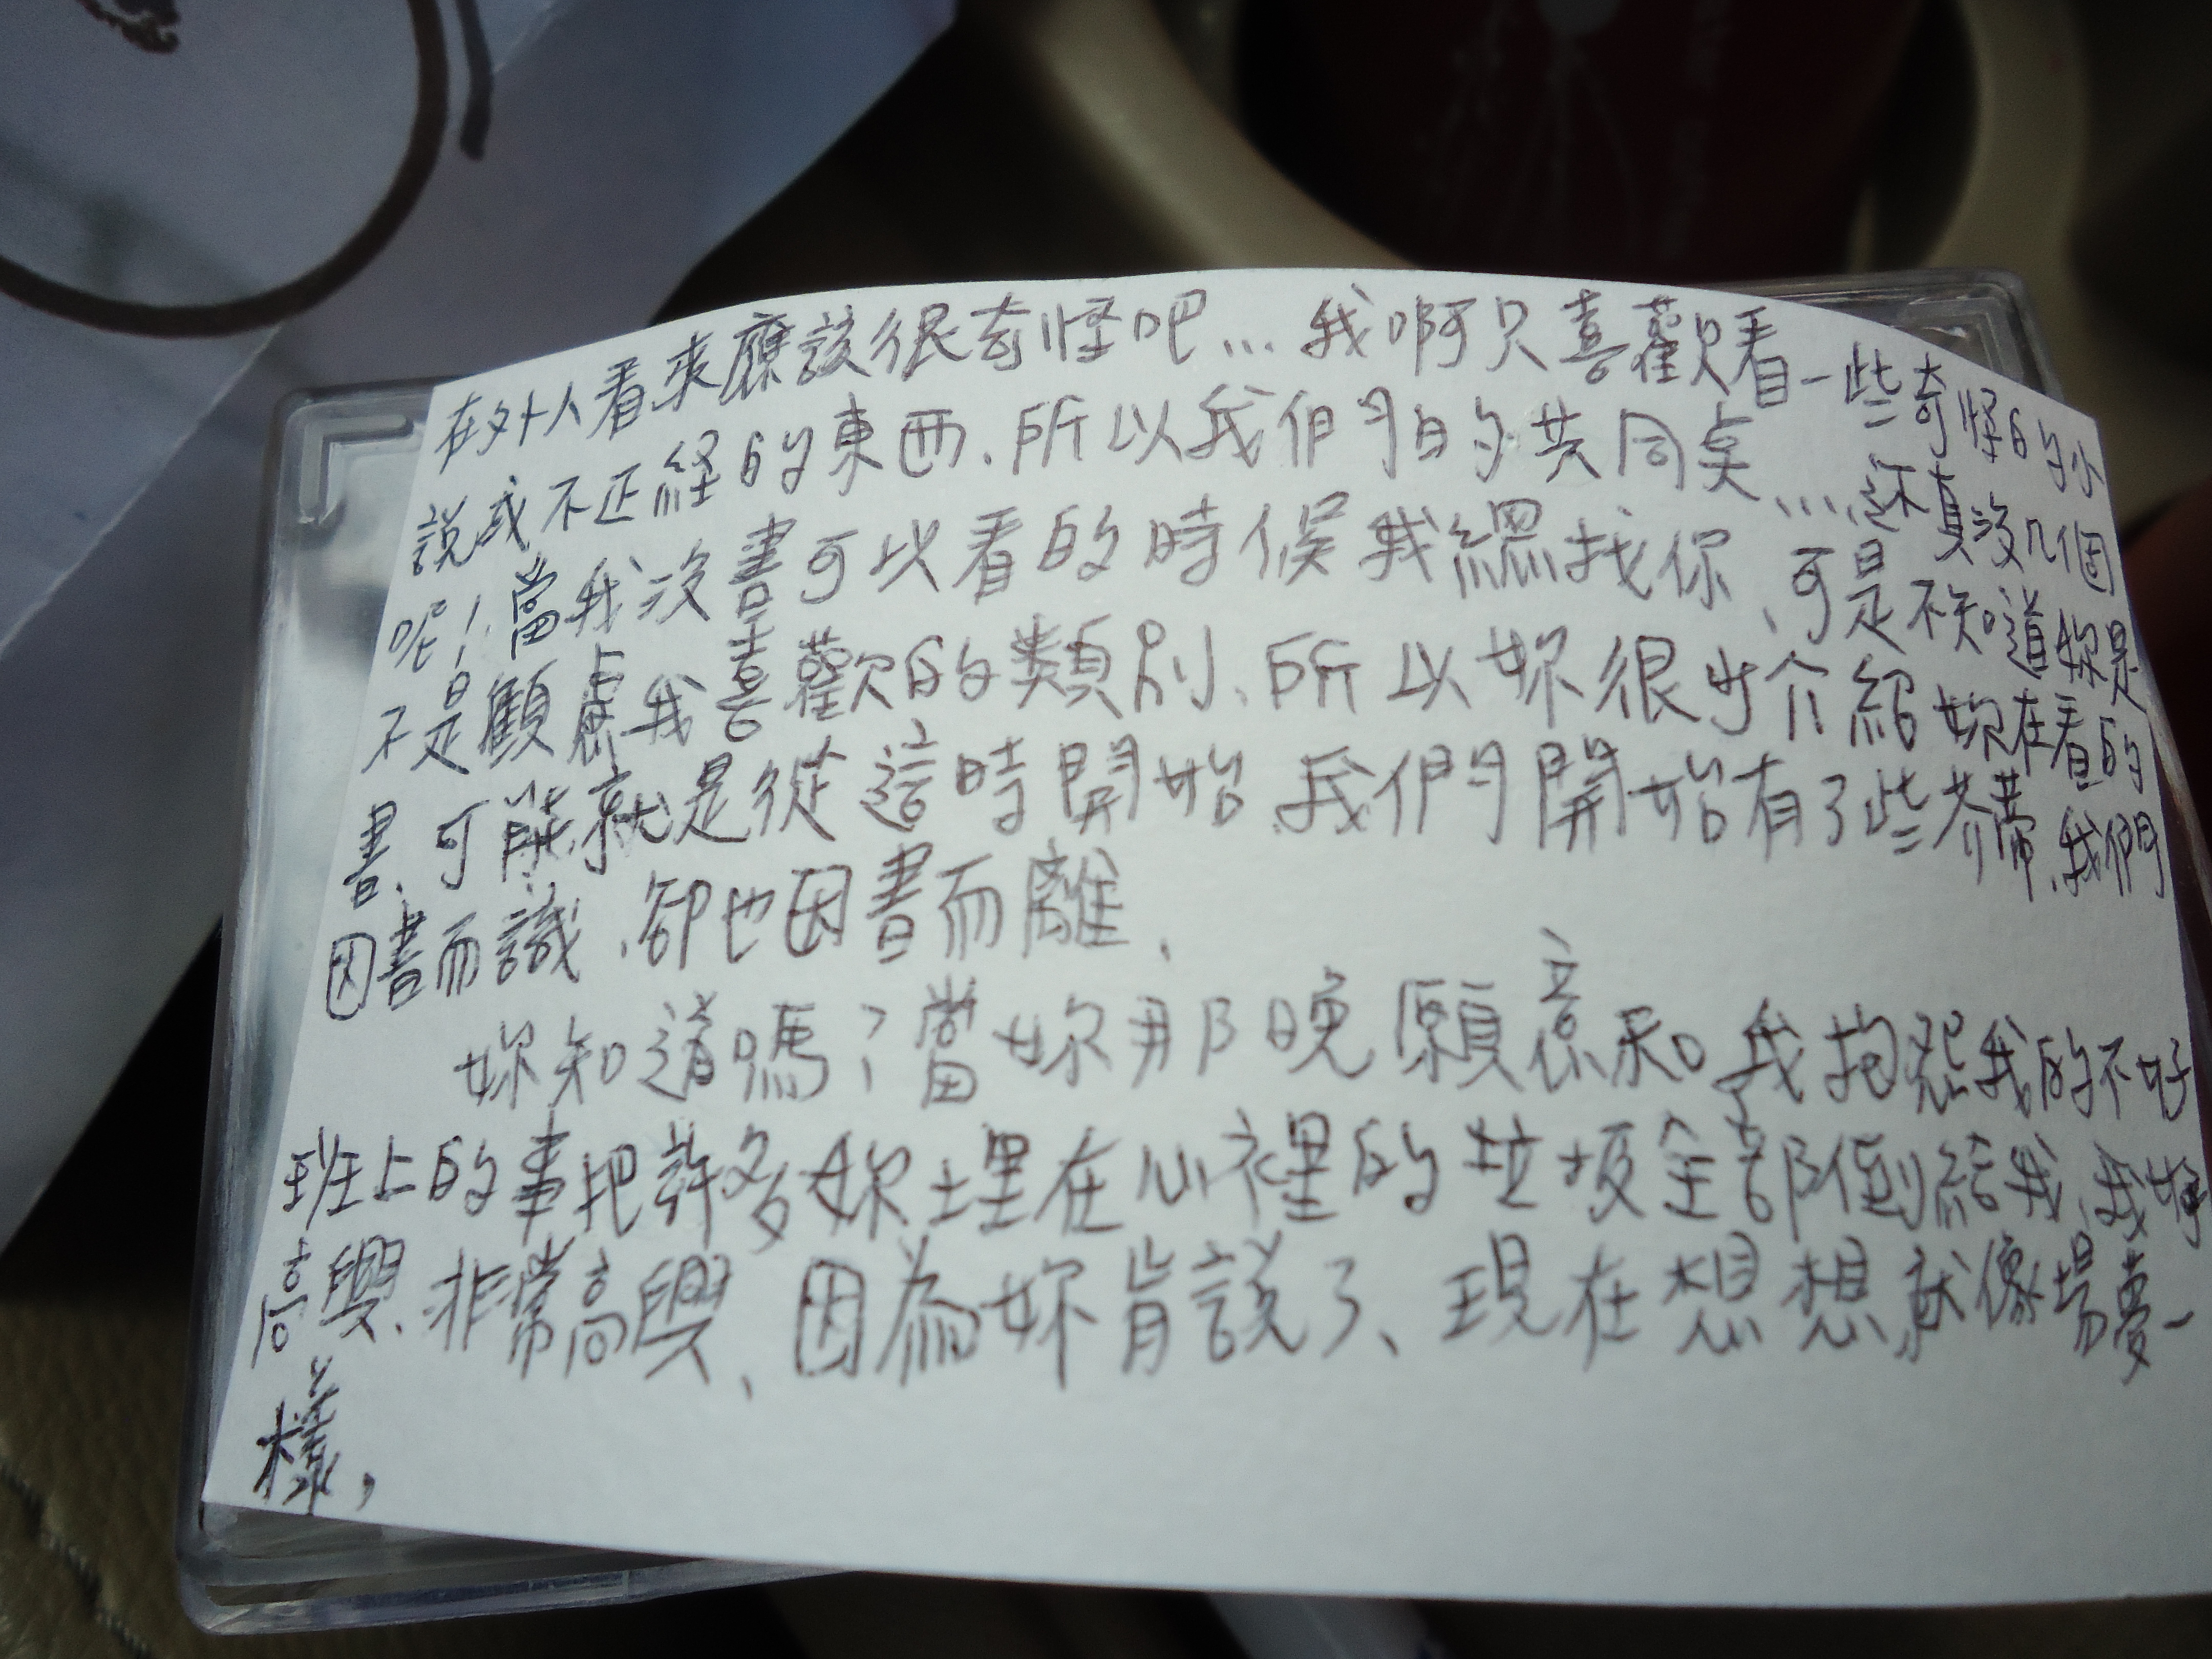 在外人看來應該很奇怪吧...我啊只喜歡看一些奇怪的小
說或不正経的東西、所以我們的共同点....還真沒几個
呢!當我沒書可以看的時候我總找你、可是不知道妳是
不是顧慮我喜歡的類別、所以妳很少介紹妳在看的
書、可能就是從這時開始、我們開始有了些芥蒂、我們
因書而識、卻也因書而離、
妳知道嗎?當妳那晚願意和我抱怨我的不好
班上的事把許多妳埋在心裡的垃圾全部倒給我、我好
高興、非常高興、因為妳肯說了、現在想想就像場夢一
樣,